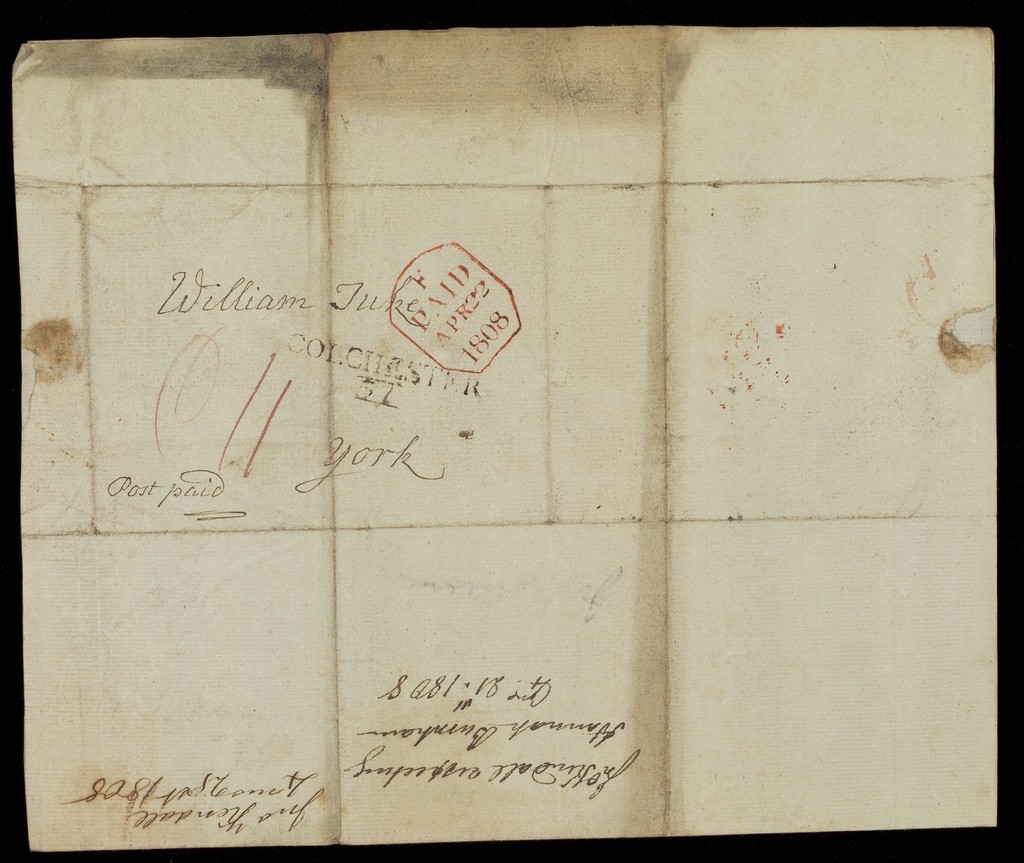 William Tuke
F
PAID
APR 22
1808
COLCHESTER
York
Post paid
Jno Kendall respecting
Hannah Burnham
21. 1808
Jno Kendall
4 mo 21st 1808